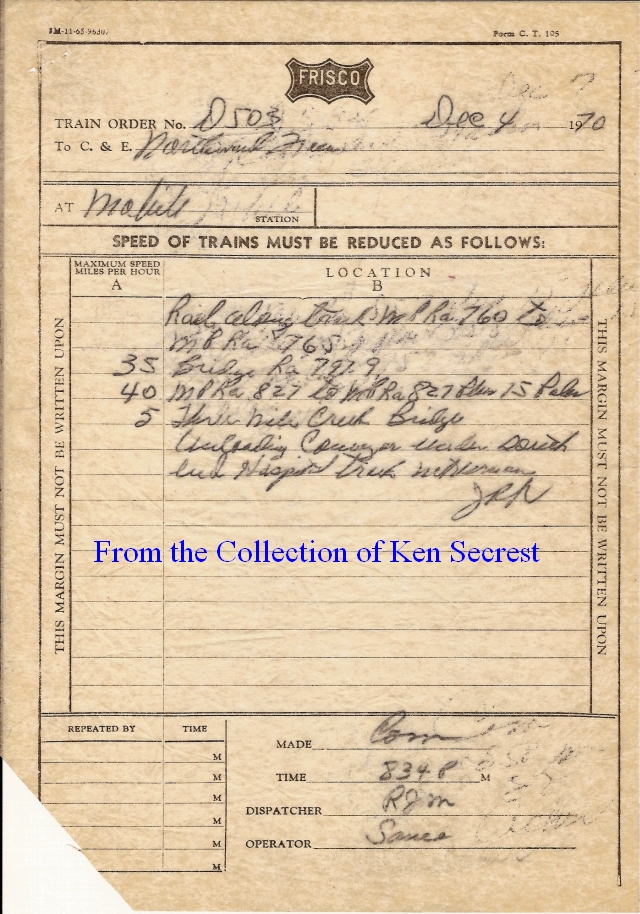 3M-11-65-96307
Form C. T. 105
FRISCO
TRAIN ORDER No. D503 Dec 4 1970
To C. & E. Northward
AT Mobile STATION
SPEED OF TRAINS MUST BE REDUCED AS FOLLOWS:
MAXIMUM SPEED
MILES PER HOUR
A
LOCATION
B
THIS MARGIN MUST NOT BE WRITTEN UPON
THIS MARGIN MUST NOT BE WRITTEN UPON
Rail along track MP Ra 760 to
MP Ra 765
35 Bridge Ra 797.9
40 MP Ra 827 to MP Ra 827 Plus 15 Poles
5 Three Mile Creek Bridge
Unloading Conveyor under South
end Track
JRR
From the Collection of Ken Secrest
REPEATED BY
TIME
M
M
M
M
M
M
MADE Com
TIME 834 P M
DISPATCHER RJM
OPERATOR